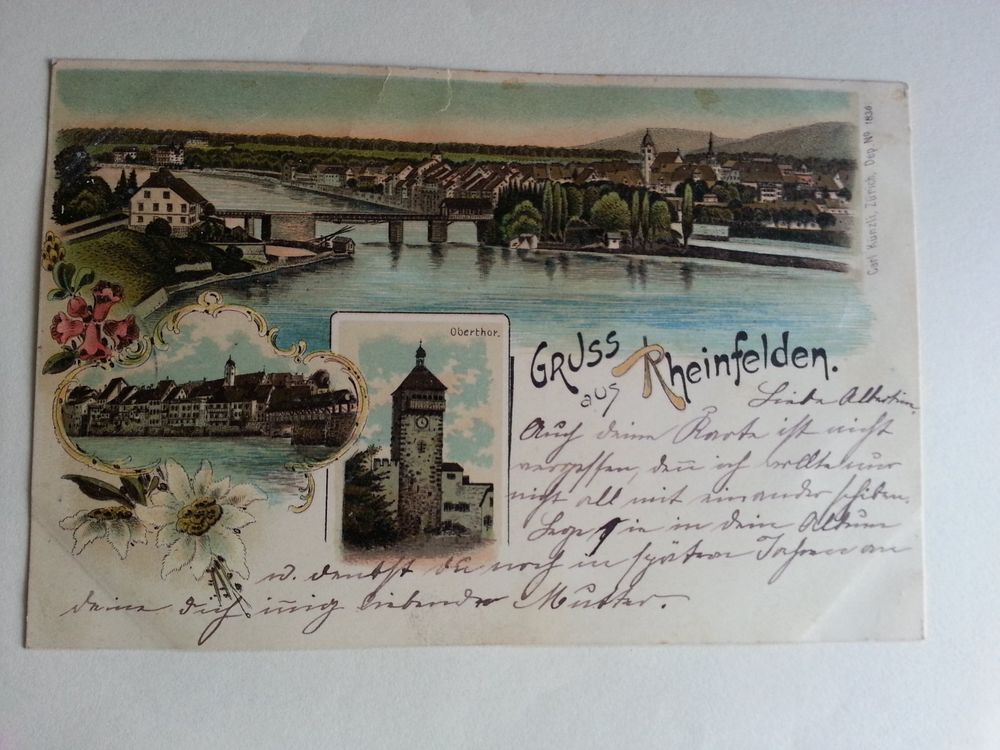 Carl Künzli, Zürich, Dep. No 1836
Oberthor.
GRUSS
aus Rheinfelden.
Liebe Albertine.
Auch deine Karte ist nicht
vergessen, denn ich wollte nur
nicht all mit einander schiben.
Lege sie in dein Album
u. denkst du noch in spätern Jahren an
deine dich innig liebende Mutter.